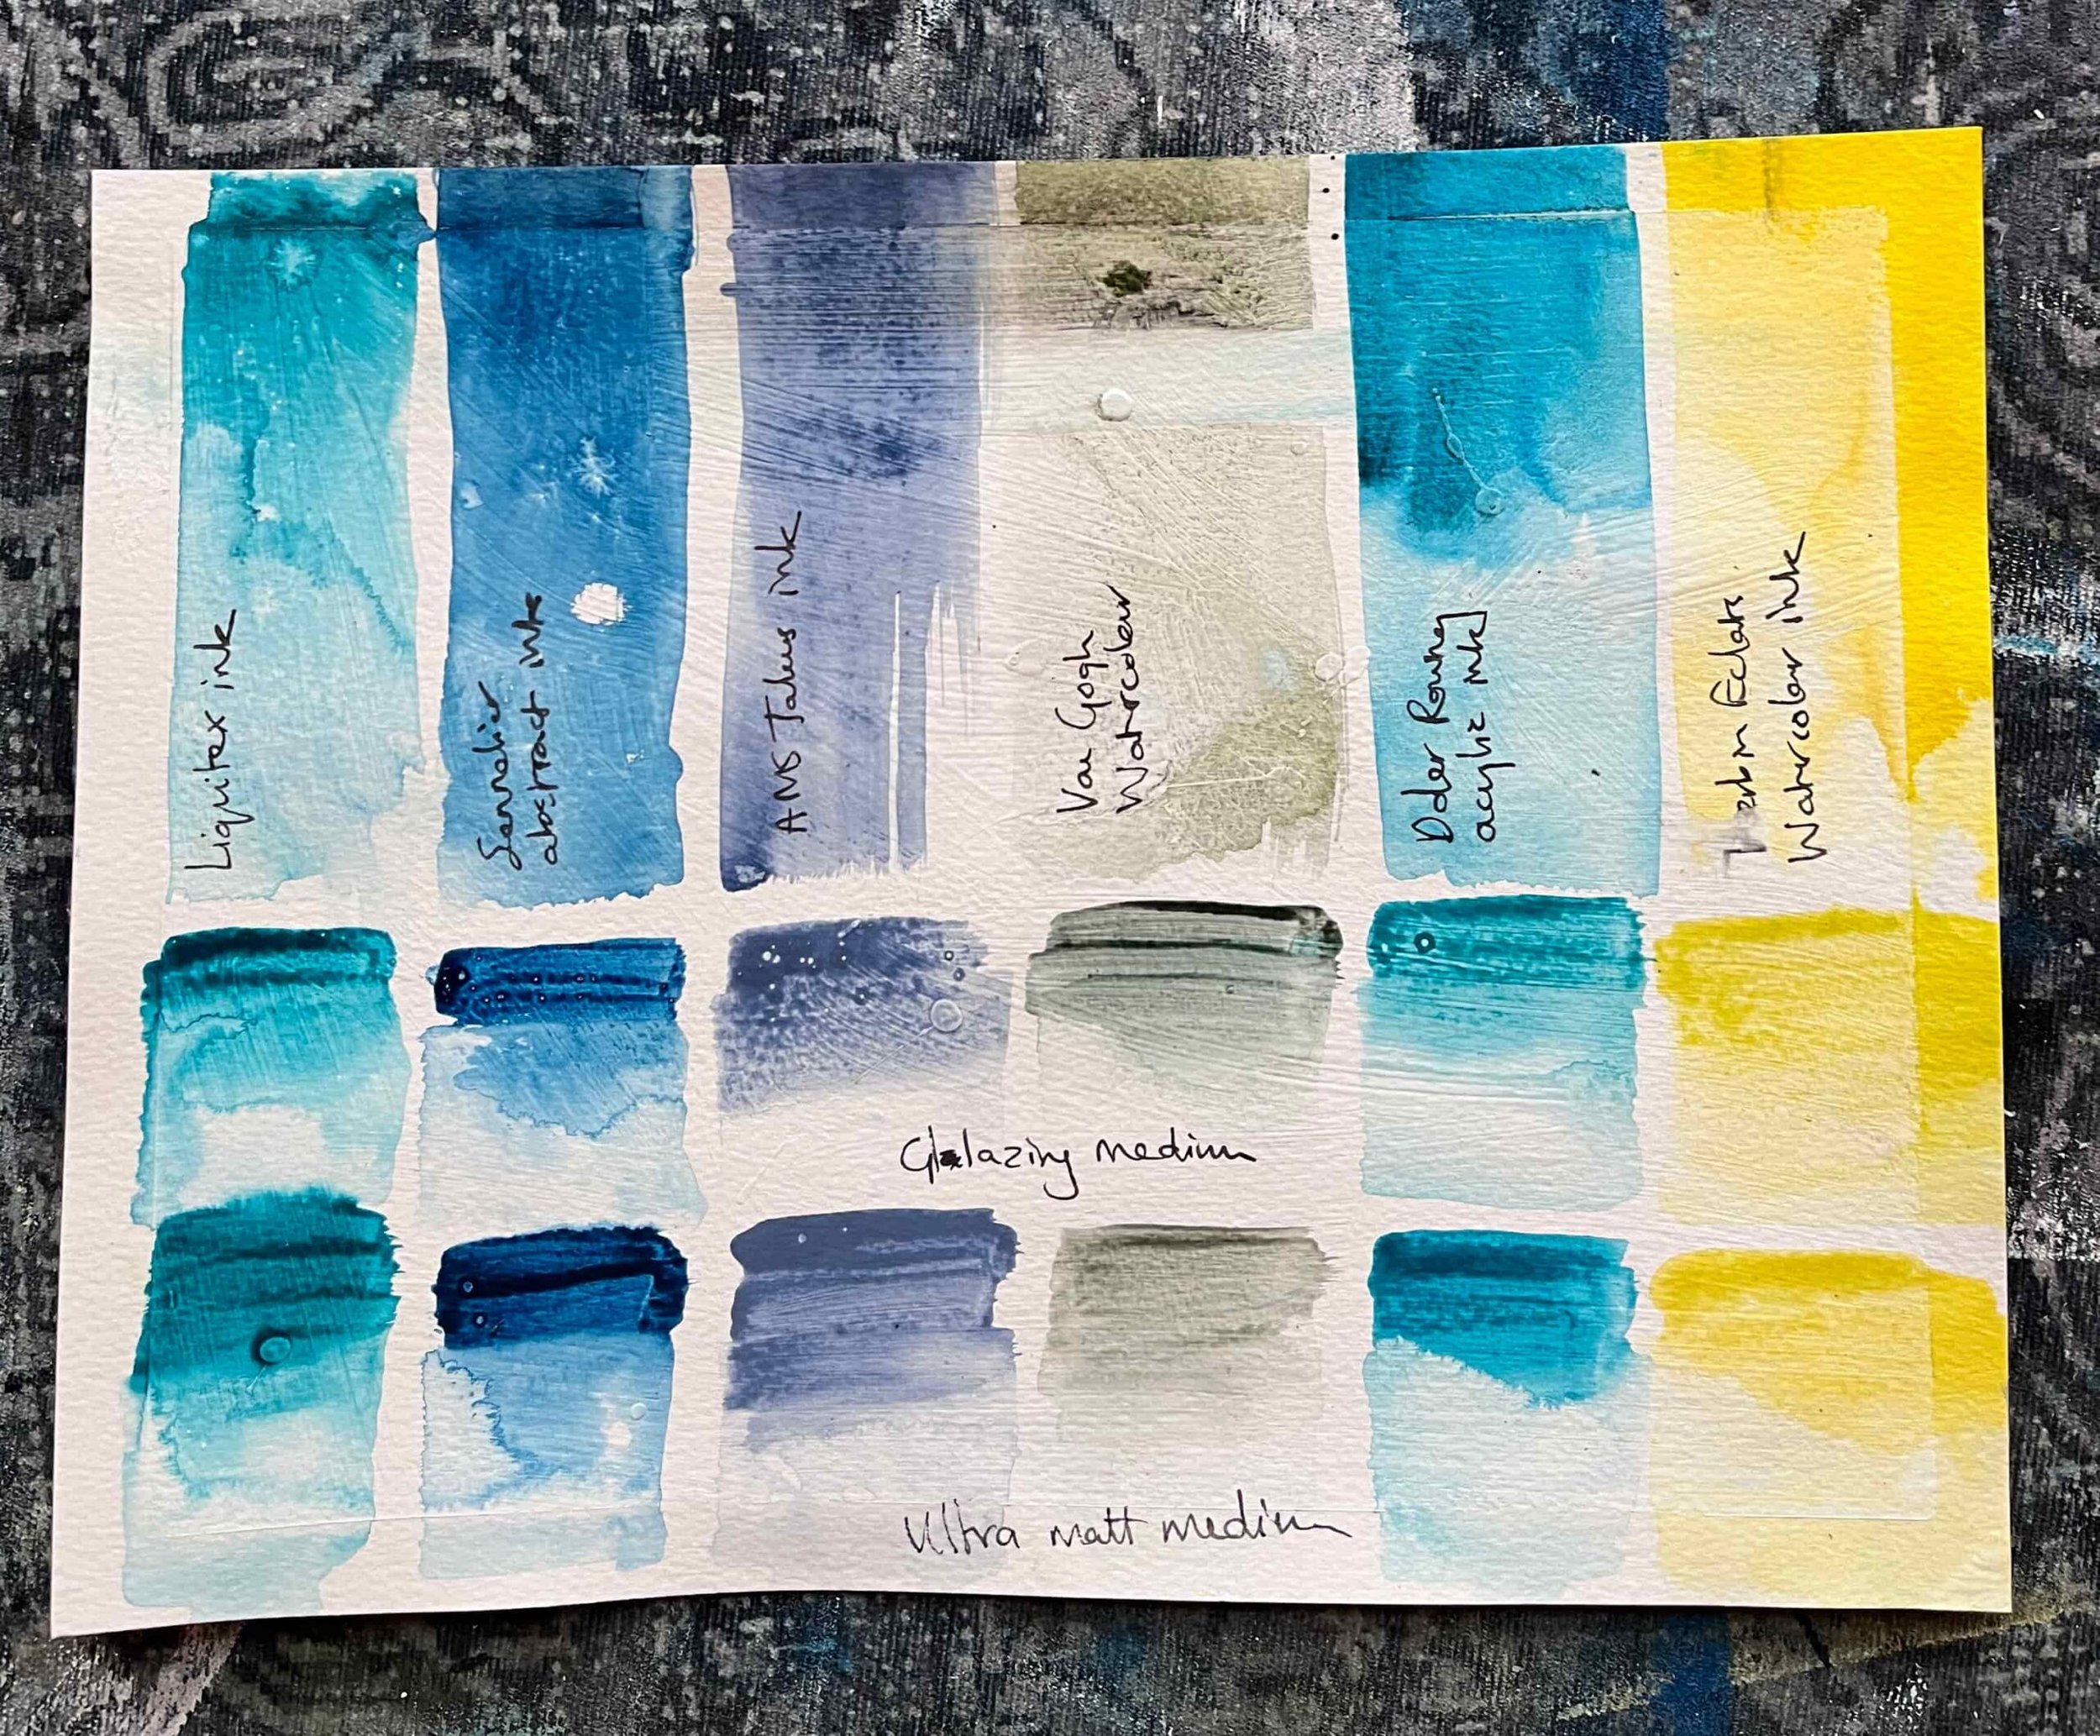 Liquitex ink
Sennelier
abstract inks
AMS ink
Van Gogh
Watercolour
Daler Rowney
acrylic ink
Eclats
Watercolour ink
Glazing medium
Ultra matt medium